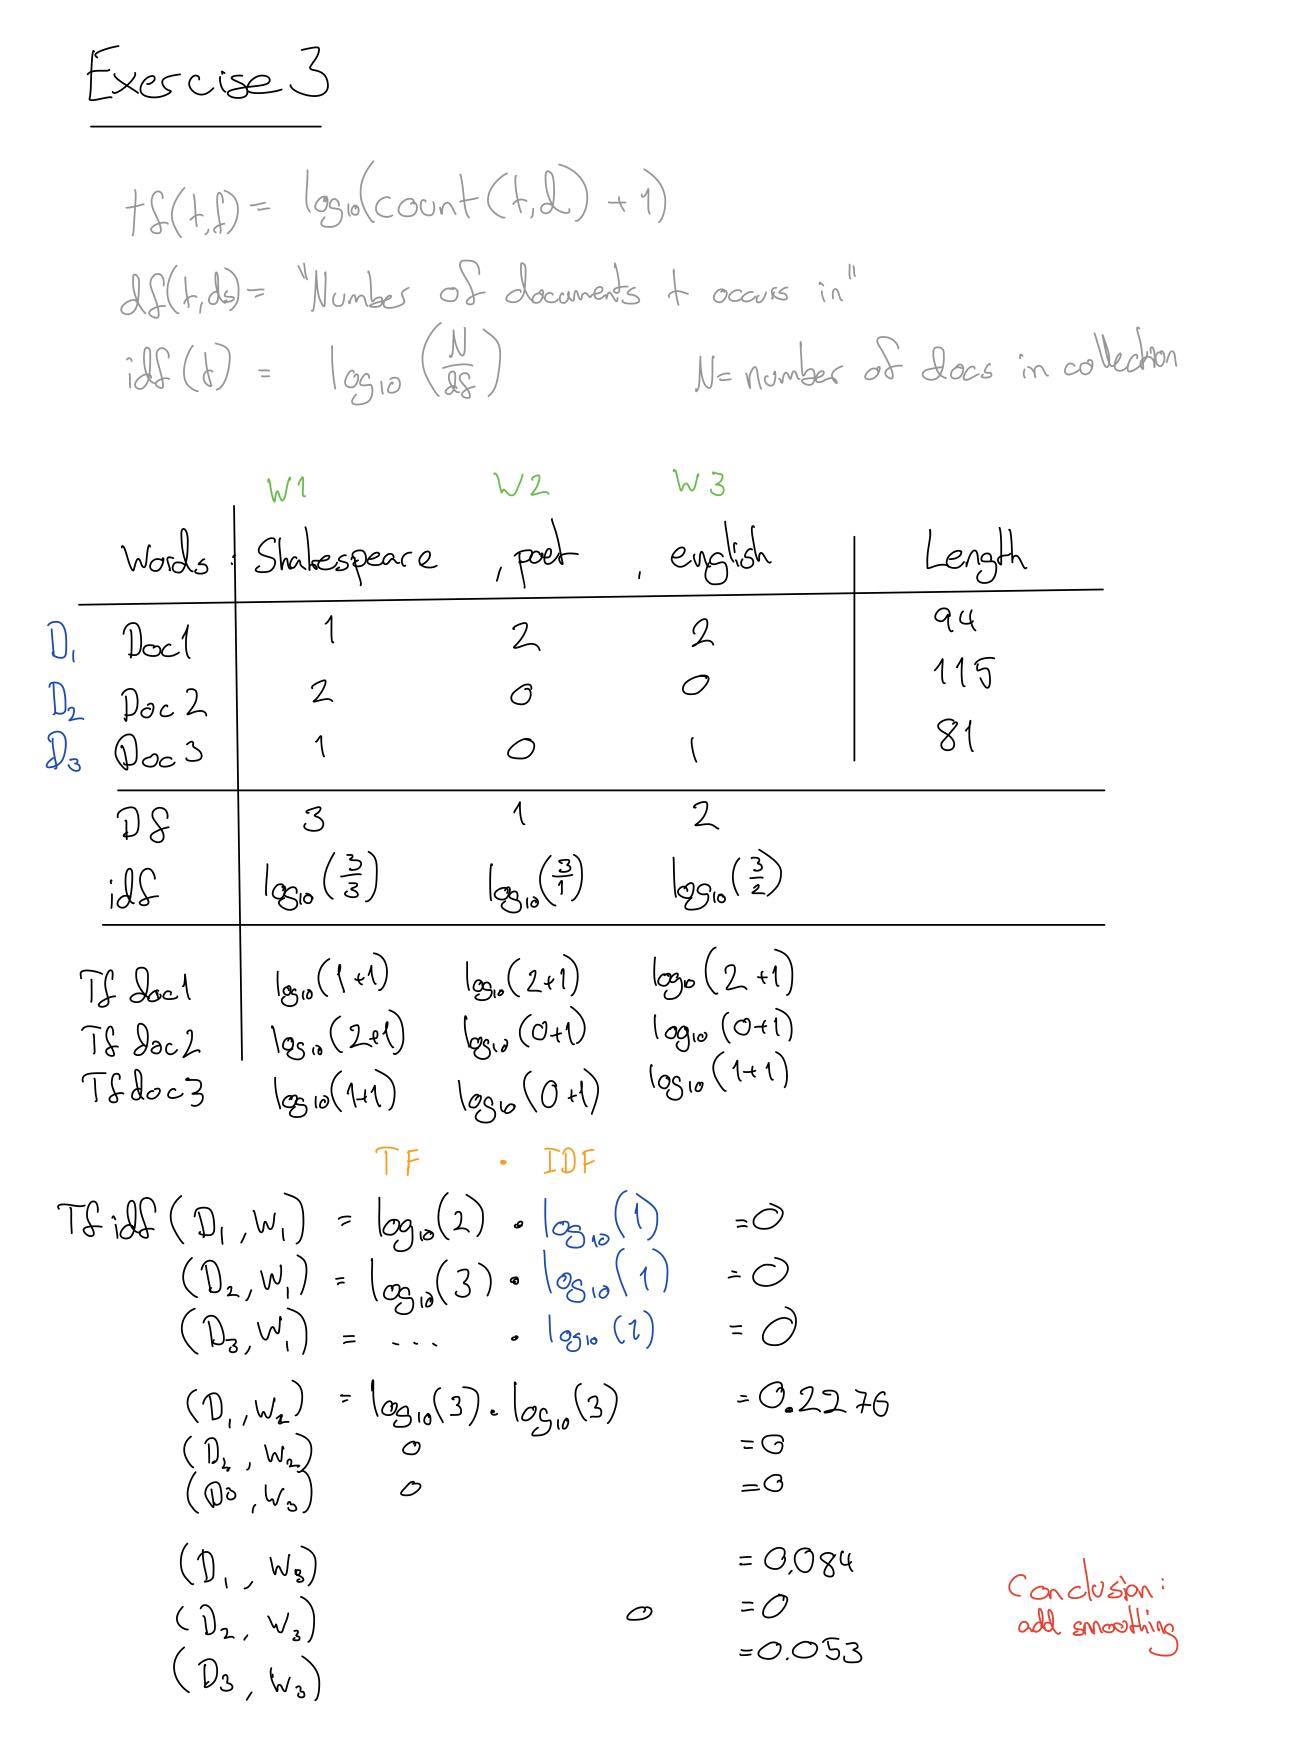 Exercise 3
tf(t,f) = log10(count(t,d) + 1)
df(t,ds) = "Number of documents t occurs in"
idf(t) = log10(N/df) N= number of docs in collection
W1 W2 W3
Words : Shakespeare , poet , english Length
D1 Doc1 1 2 2 94
D2 Doc2 2 0 0 115
D3 Doc3 1 0 1 81
Df 3 1 2
idf log10(3/3) log10(3/1) log10(3/2)
Tf doc1 log10(1+1) log10(2+1) log10(2+1)
Tf doc2 log10(2+1) log10(0+1) log10(0+1)
Tf doc3 log10(1+1) log10(0+1) log10(1+1)
TF · IDF
Tf idf (D1, W1) = log10(2) · log10(1) =0
(D2, W1) = log10(3) · log10(1) =0
(D3, W1) = ... · log10(1) =0
(D1, W2) = log10(3) · log10(3) =0.2276
(D2, W2) 0 =0
(D3, W3) 0 =0
(D1, W3) =0,084
(D2, W3) 0 =0
(D3, W3) =0.053
Conclusion:
add smoothing